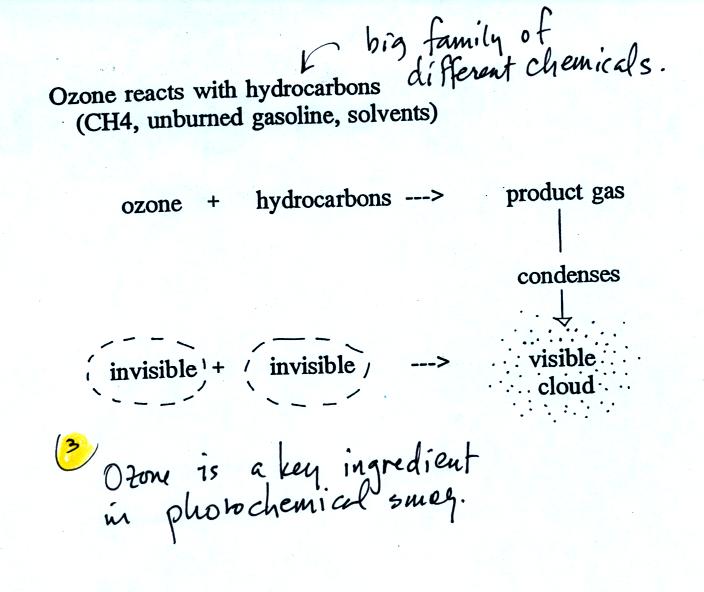 big family of
different chemicals.
Ozone reacts with hydrocarbons
(CH4, unburned gasoline, solvents)
ozone + hydrocarbons ---> product gas
condenses
invisible + invisible ---> visible
cloud
3
Ozone is a key ingredient
in photochemical smog.